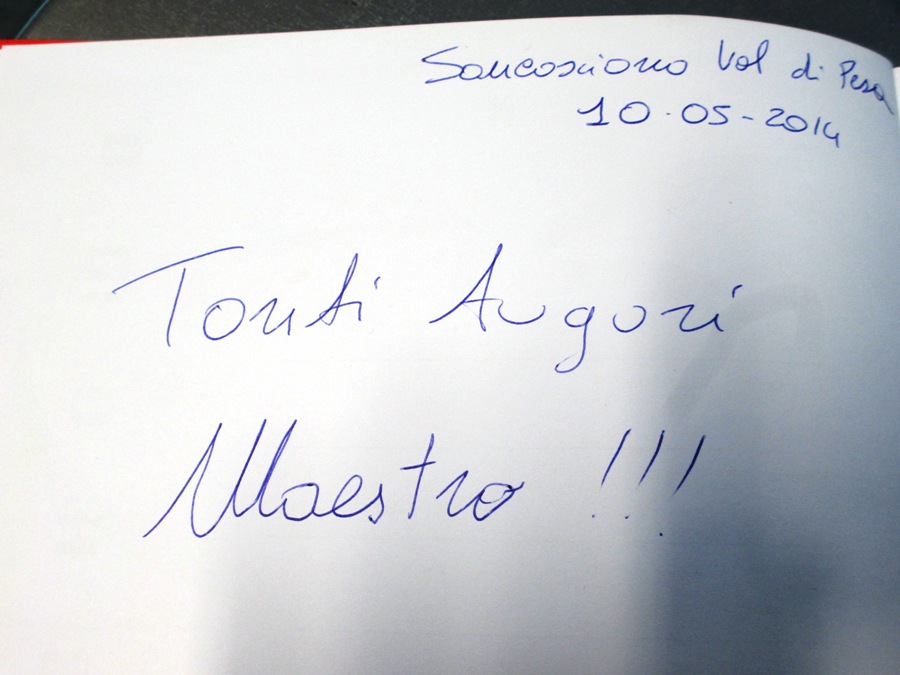 Sancasciano Val di Pesa
10.05-2014
Tanti Auguri
Maestro !!!